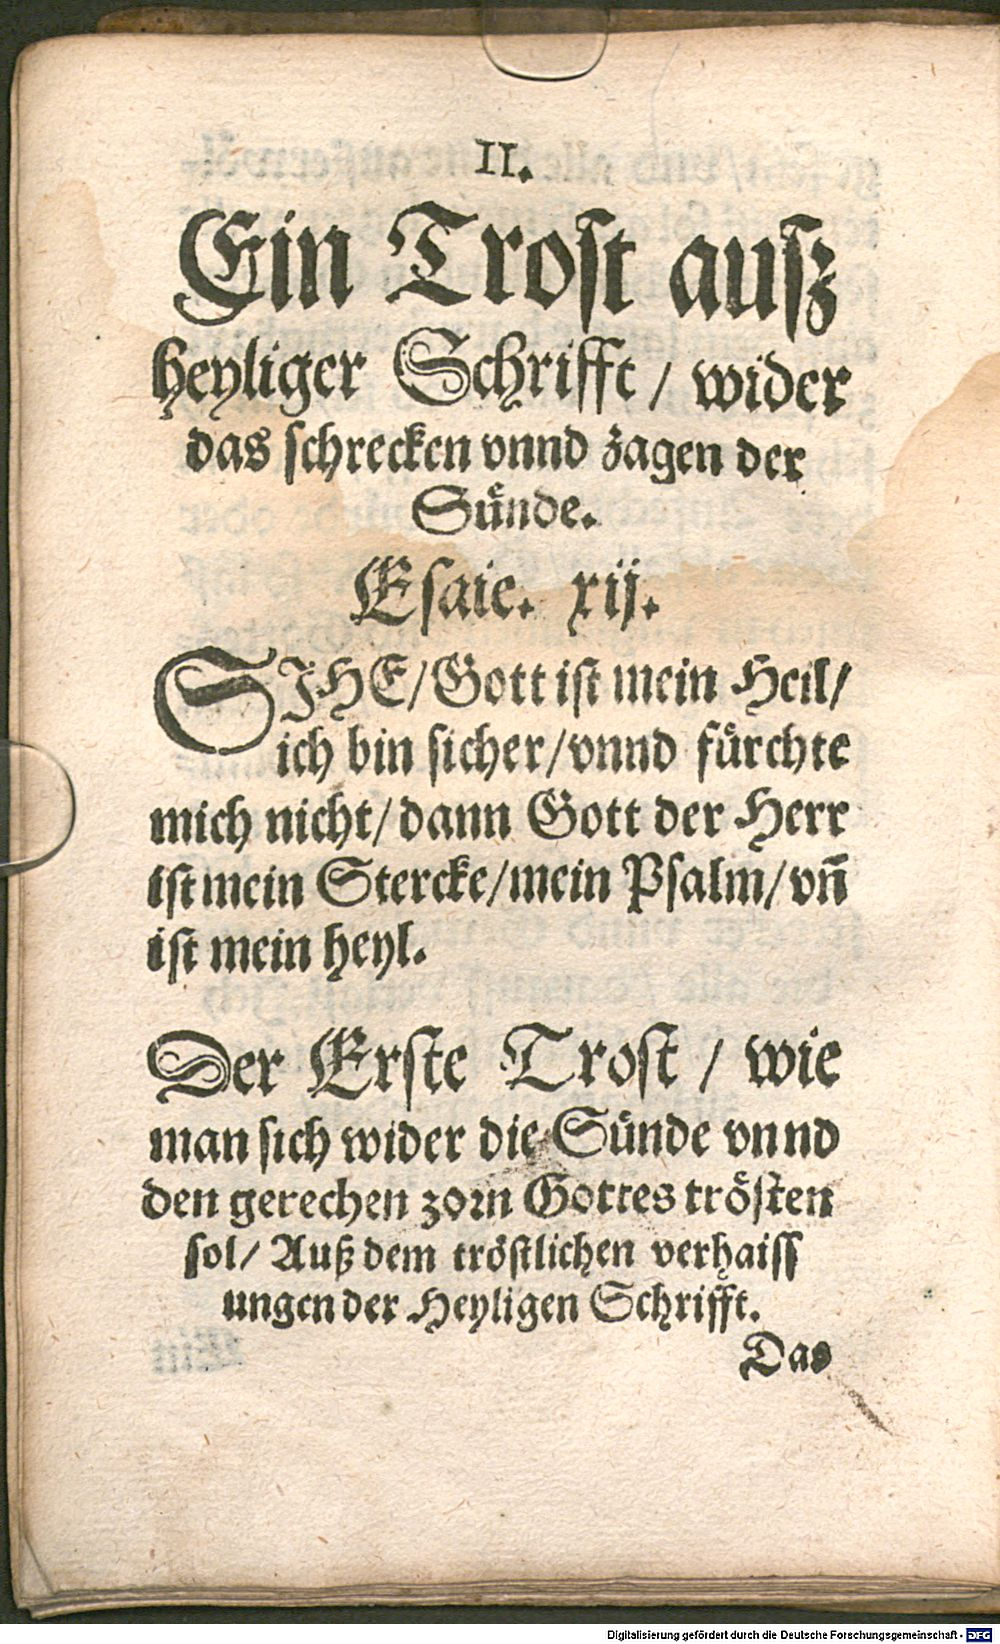 II.
Ein Trost ausz
heyliger Schrifft / wider
das schrecken vnnd zagen der
Sünde.
Esaie. xij.
SIHE/Gott ist mein Heil/
ich bin sicher/vnnd fürchte
mich nicht/dann Gott der Herr
ist mein Stercke/mein Psalm/vñ
ist mein heyl.
Der Erste Trost / wie
man sich wider die Sünde vnnd
den gerechen zorn Gottes trösten
sol/ Auß dem tröstlichen verhaiss
ungen der Heyligen Schrifft.
Das
Digitalisierung gefördert durch die Deutsche Forschungsgemeinschaft - DFG